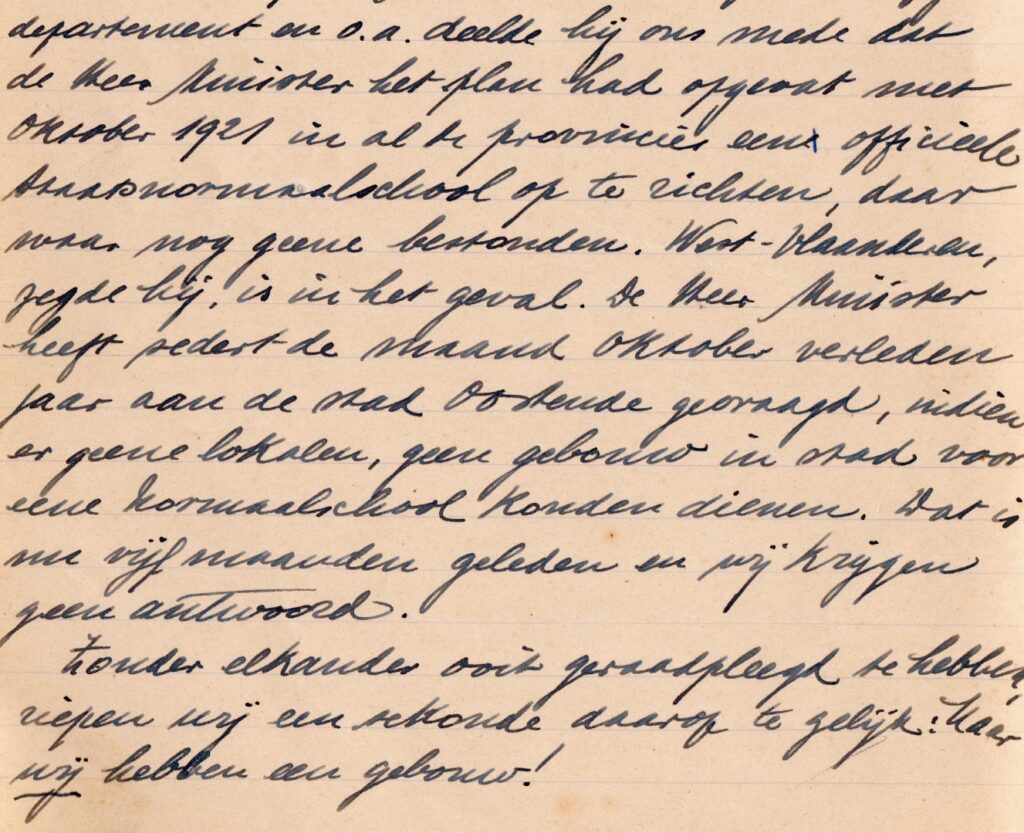 departement en o.a. deelde hij ons mede dat
de Heer Minister het plan had opgevat met
Oktober 1921 in al de provincies een officieele
staatsnormaalschool op te richten, daar
waar nog geene bestonden. West-Vlaanderen,
zegde hij, is in het geval. De Heer Minister
heeft sedert de maand Oktober verleden
jaar aan de stad Oostende gevraagd, indien
er geene lokalen, geen gebouw in stad voor
eene Normaalschool konden dienen. Dat is
nu vijf maanden geleden en wij krijgen
geen antwoord.
Zonder elkander ooit geraadpleegd te hebben,
riepen wij een sekonde daarop te gelijk: Maar
wij hebben een gebouw!